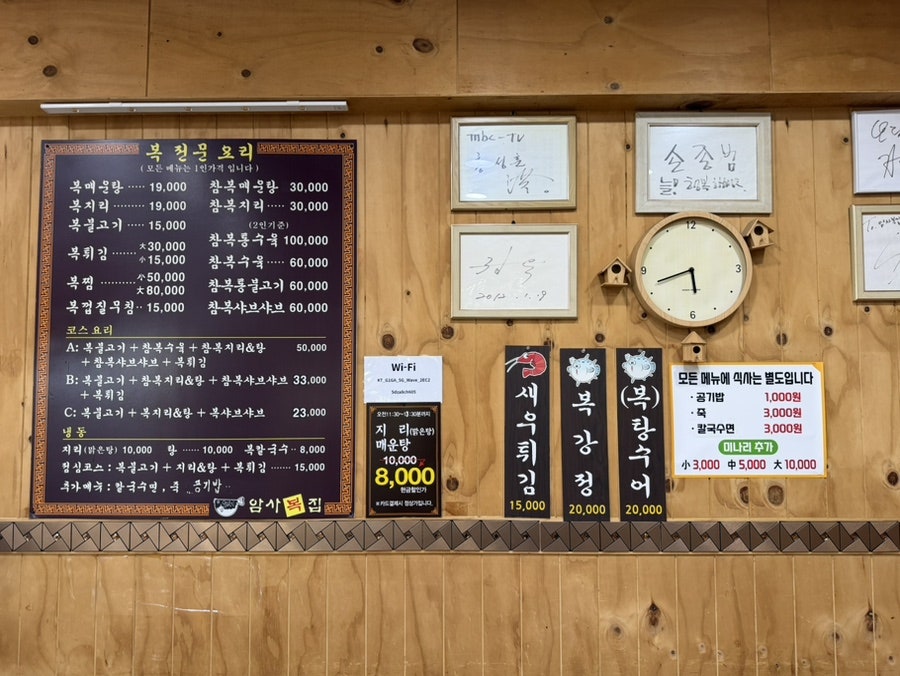 복 전문 요리
( 모든 메뉴는 1인가격 입니다 )
복매운탕 ····· 19,000
복지리 ········· 19,000
복불고기 ···· 15,000
복튀김 ······ 大30,000
小15,000
복찜 ········· 小50,000
大80,000
복껍질무침·· 15,000
참복매운탕 30,000
참복지리 ···· 30,000
(2인기준)
참복통수육 100,000
참복수육 ···· 60,000
참복통불고기 60,000
참복샤브샤브 60,000
코스 요리
A: 복불고기 + 참복수육 + 참복지리&탕 50,000
+ 참복샤브샤브 + 복튀김
B: 복불고기 + 참복지리&탕 + 참복샤브샤브 33,000
+ 복튀김
C: 복불고기 + 복지리&탕 + 복샤브샤브 23,000
냉 동
지리(맑은탕) 10,000 탕 ······ 10,000 복칼국수 ·· 8,000
점심코스 : 복불고기 + 지리&탕 + 복튀김 ······ 15,000
추가메뉴 : 칼국수면 , 죽 공기밥
암사복집
Wi-Fi
KT_GiGA_5G_Wave_2812
오전11:30~13:30분까지
지 리(맑은탕)
매운탕
10,000
8,000
현금할인가
※카드결제시 정상가입니다.
mbc-TV
손종범
2012. 1. 19
12
3
6
9
새우튀김
15,000
복강정
20,000
(복)탕수어
20,000
모든 메뉴에 식사는 별도입니다
· 공기밥 1,000원
· 죽 3,000원
· 칼국수면 3,000원
미나리 추가
小 3,000 中 5,000 大 10,000